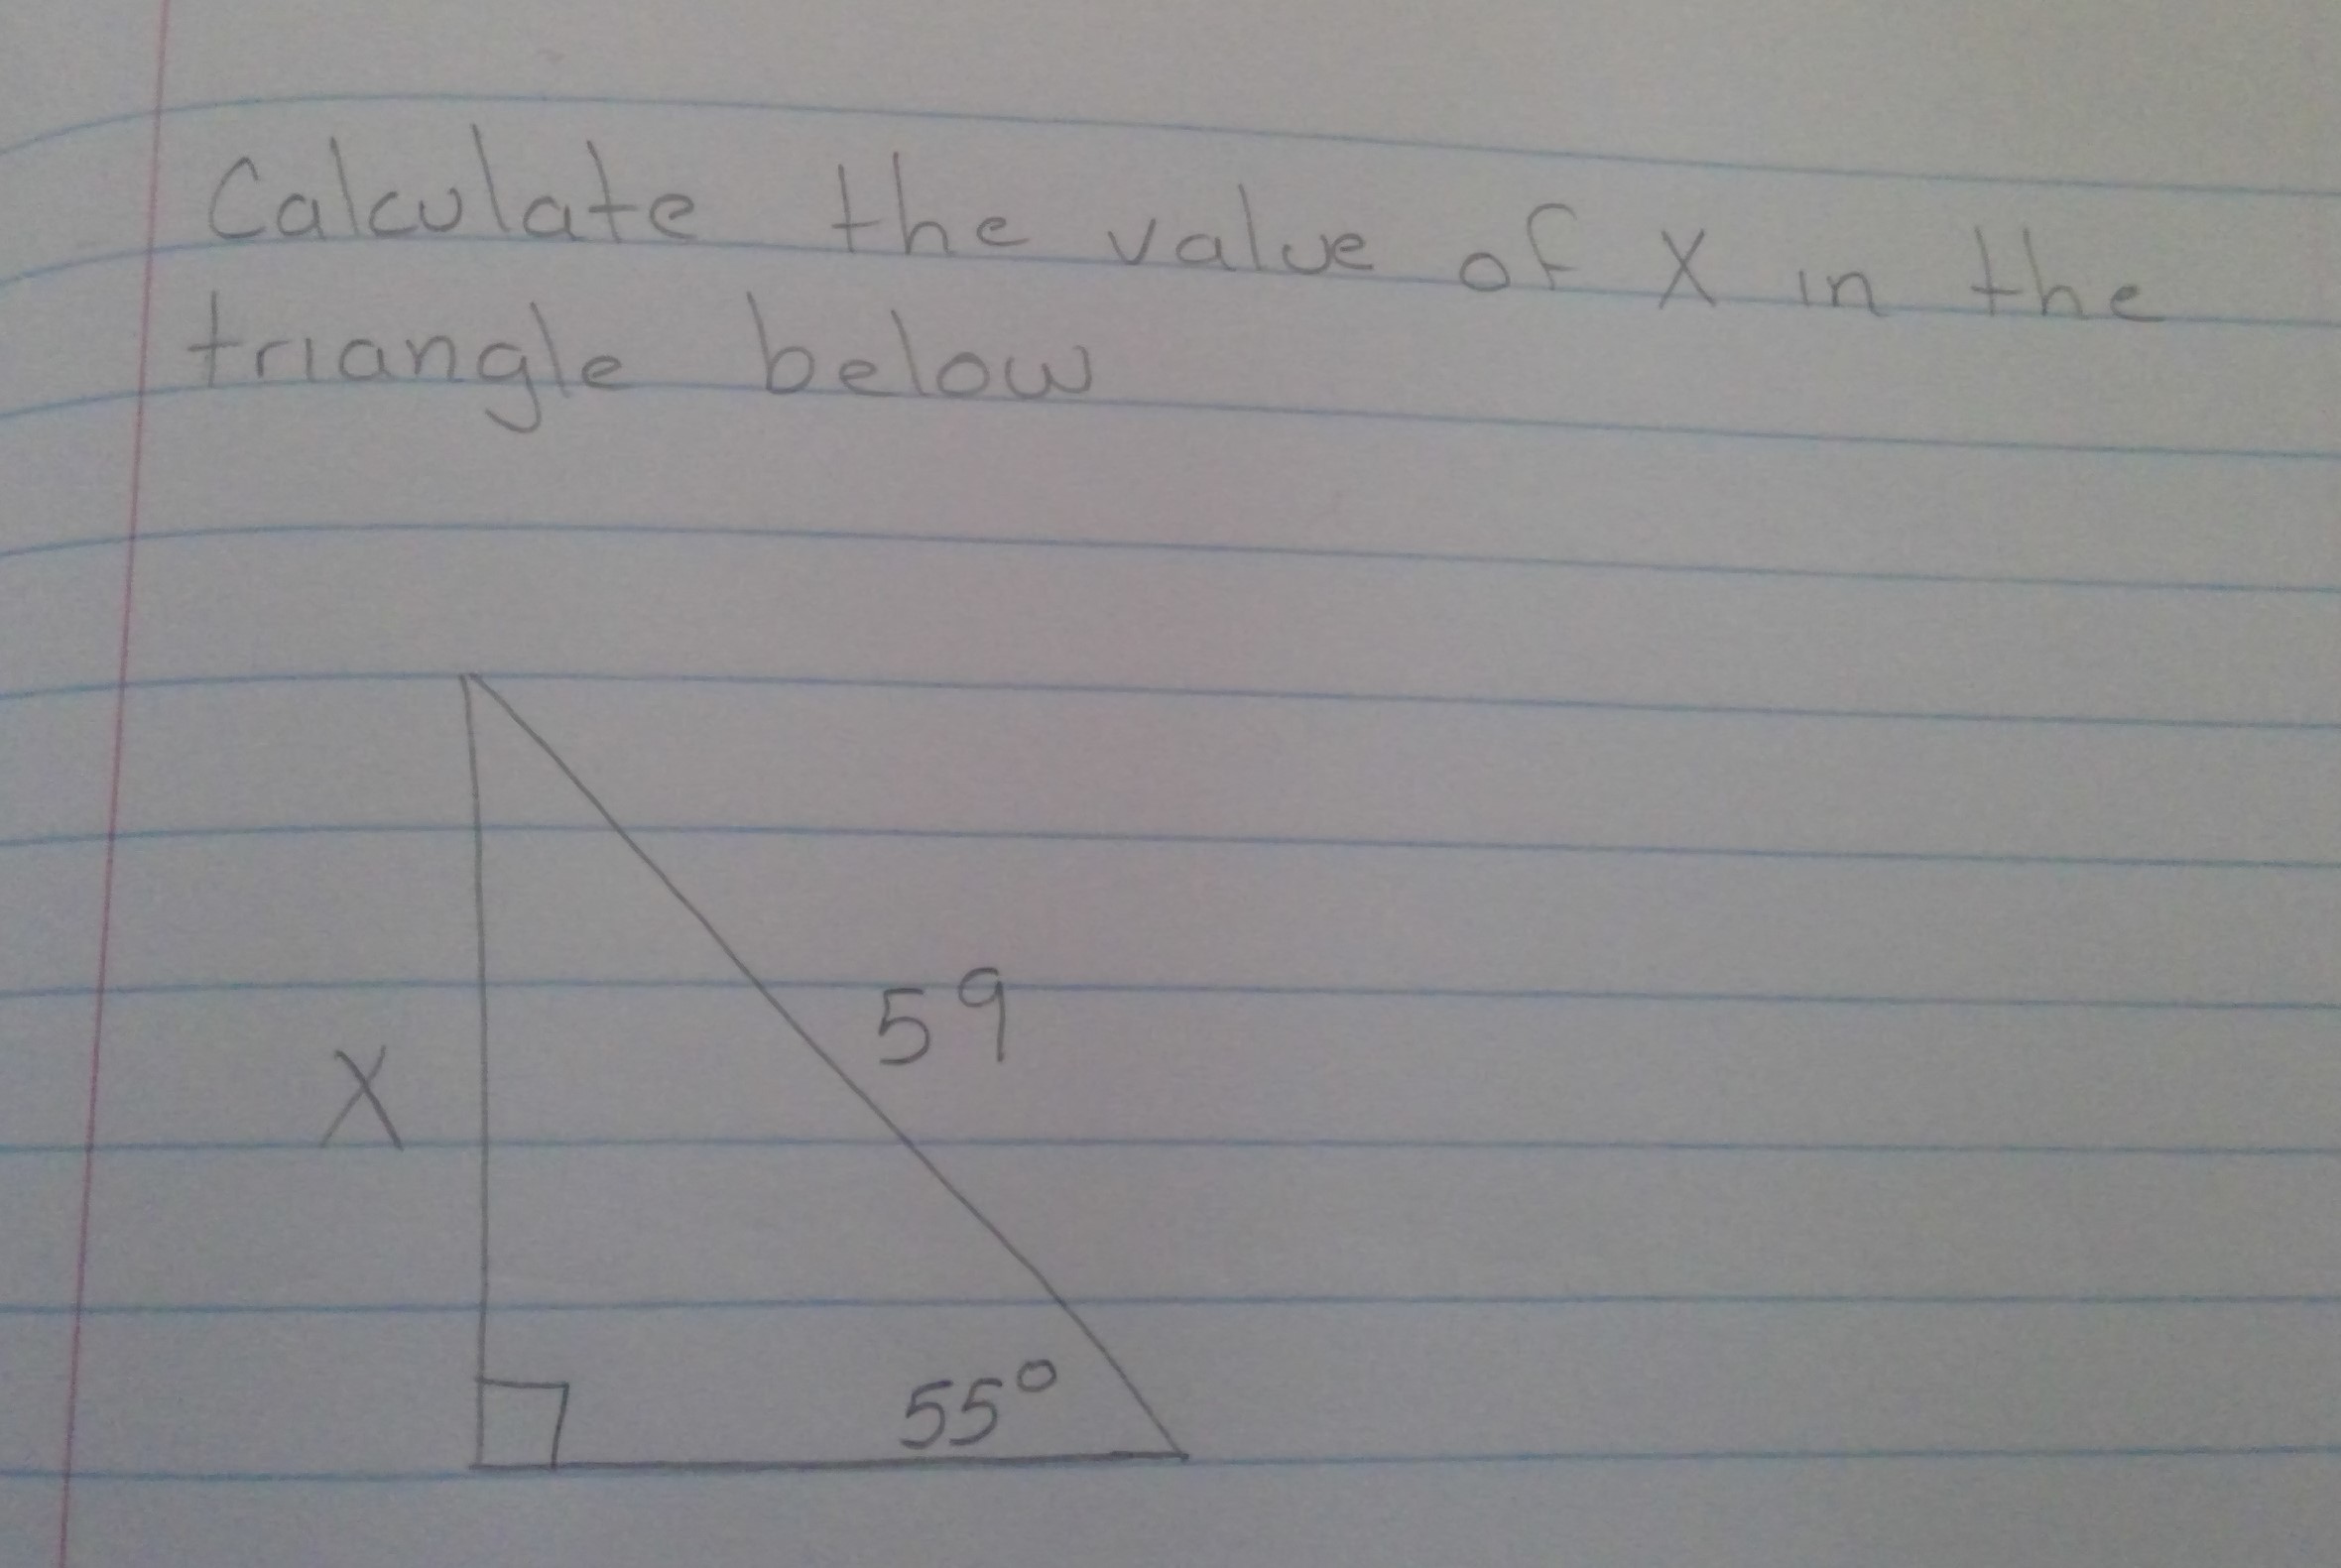 Calculate the value of X in the
triangle below
59
X
55°